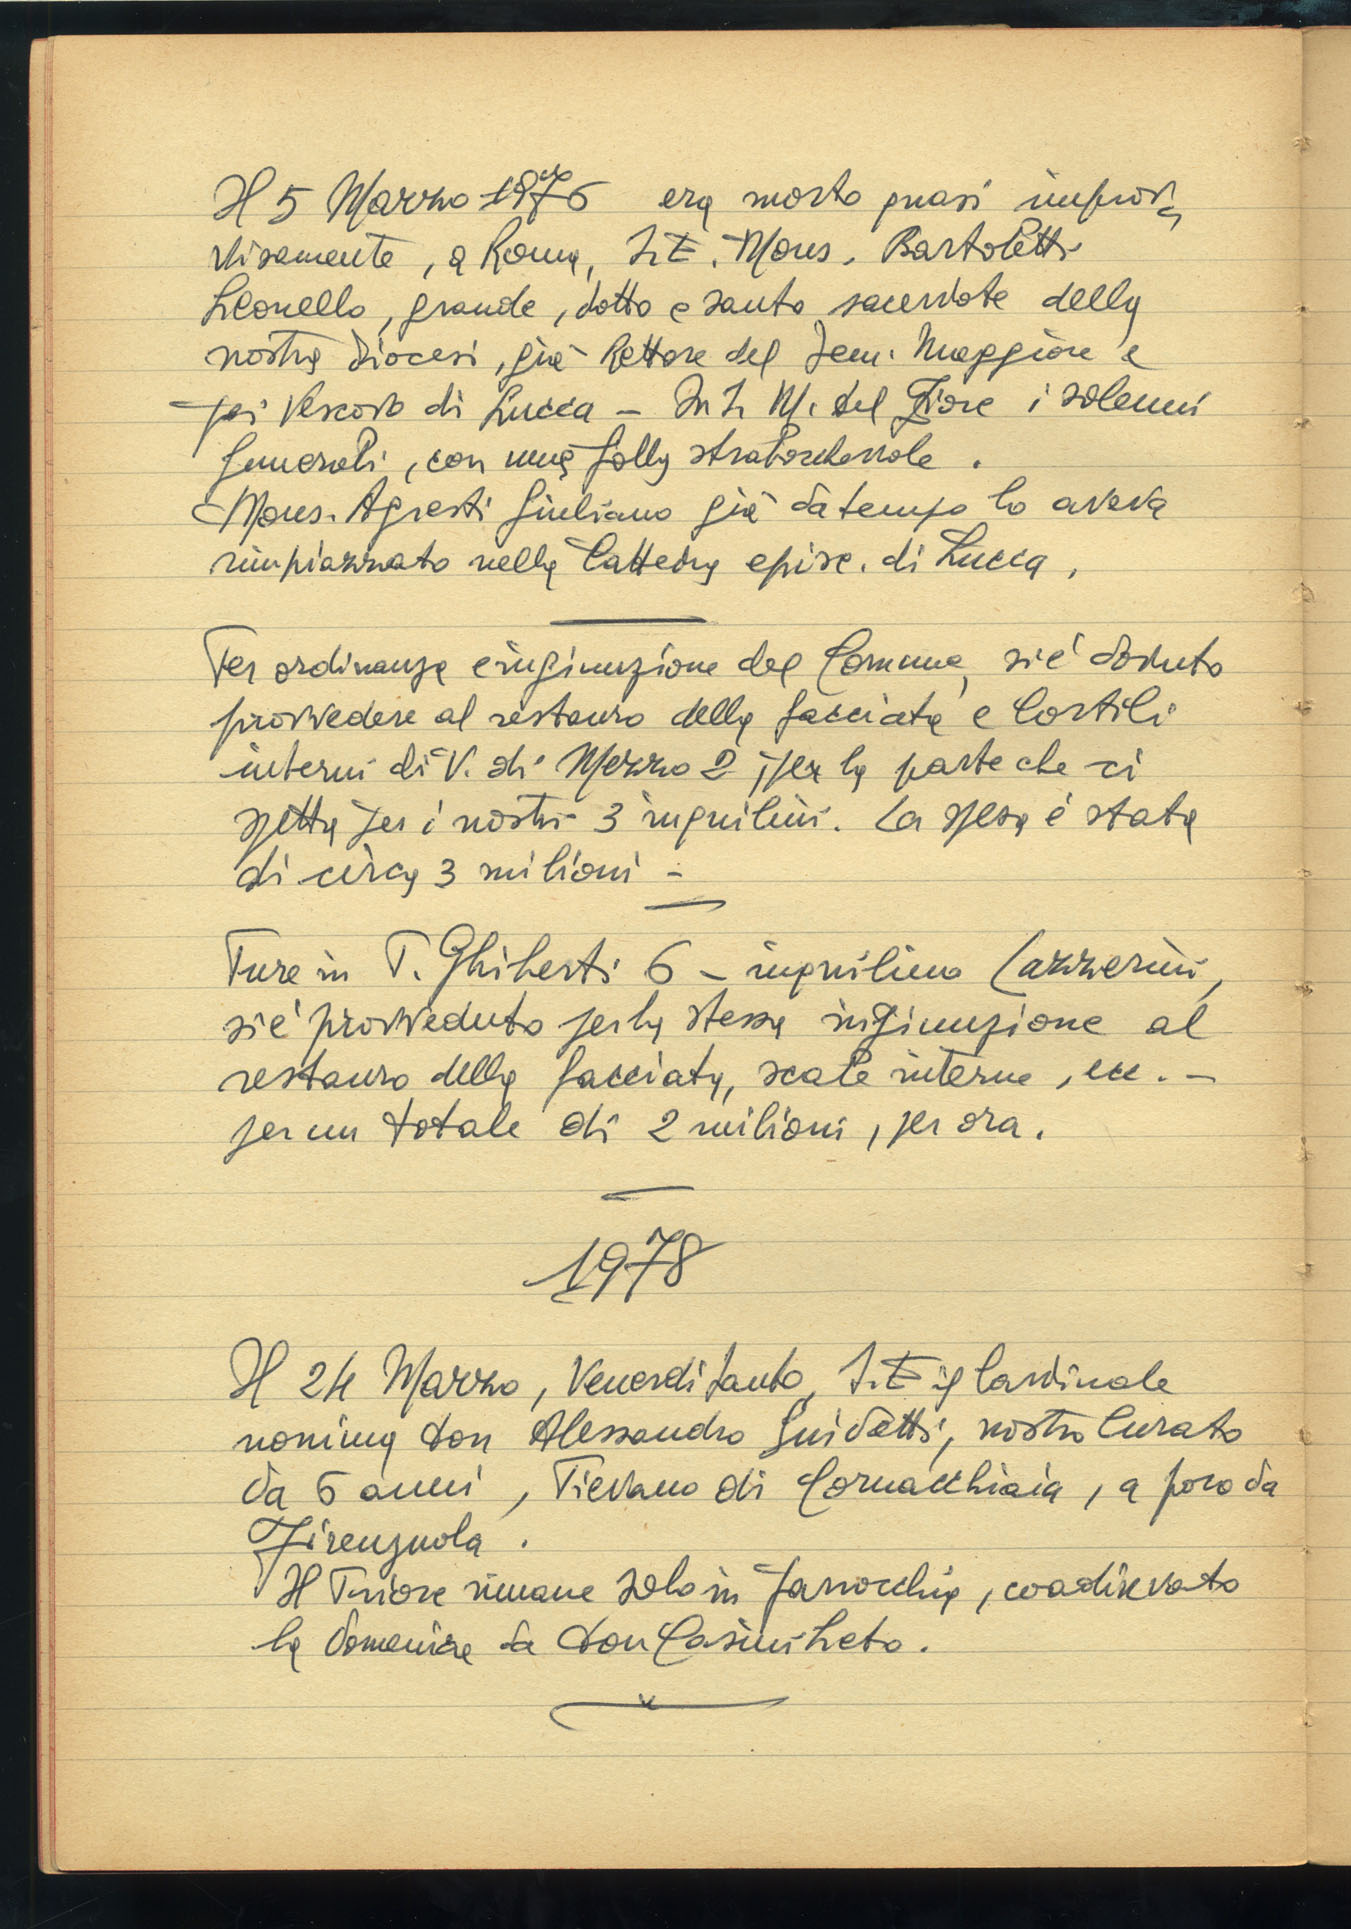 Il 5 Marzo 1976 era morto quasi improv-
visamente, a Roma, S.E. Mons. Bartoletti
Leonello, grande, dotto e santo sacerdote della
nostra Diocesi, già Rettore del Sem. Maggiore e
poi Vescovo di Lucca - In S. M. del Fiore i solenni
funerali, con una folla strabocchevole.
Mons. Agresti Giuliano già da tempo lo aveva
rimpiazzato nella Cattedra episc. di Lucca.
Per ordinanza e ingiunzione del Comune, si è dovuto
provvedere al restauro della facciata e Cortili
interni di V. di Mezzo 2, per la parte che ci
spetta per i nostri 3 inquilini. La spesa è stata
di circa 3 milioni -
Pure in P. Ghiberti 6 - inquilino Lazzerini,
si è provveduto per la stessa ingiunzione al
restauro della facciata, scale interne, ecc. -
per un totale di 2 milioni, per ora.
1978
Il 24 Marzo, Venerdì Santo, S.E il Cardinale
nomina don Alessandro Guidotti, nostro Curato
da 6 anni, Pievano di Cornacchiaia, a poco da
Firenzuola.
Il Priore rimane solo in parrocchia, coadiuvato
la domenica da don Casini Beto.